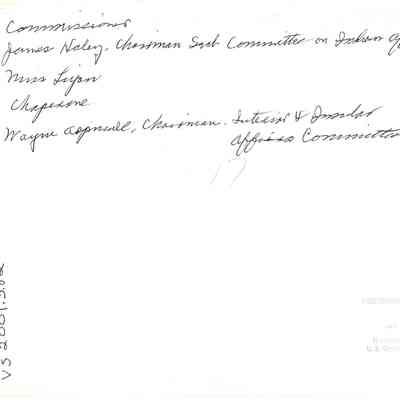 Commissioner
James Haley, Chairman Sub Committee on Indian Af
Miss
Chaperone
Wayne Aspinall, Chairman. Interior & Insular
Affairs Committee
VS2001.5.02
U.S.